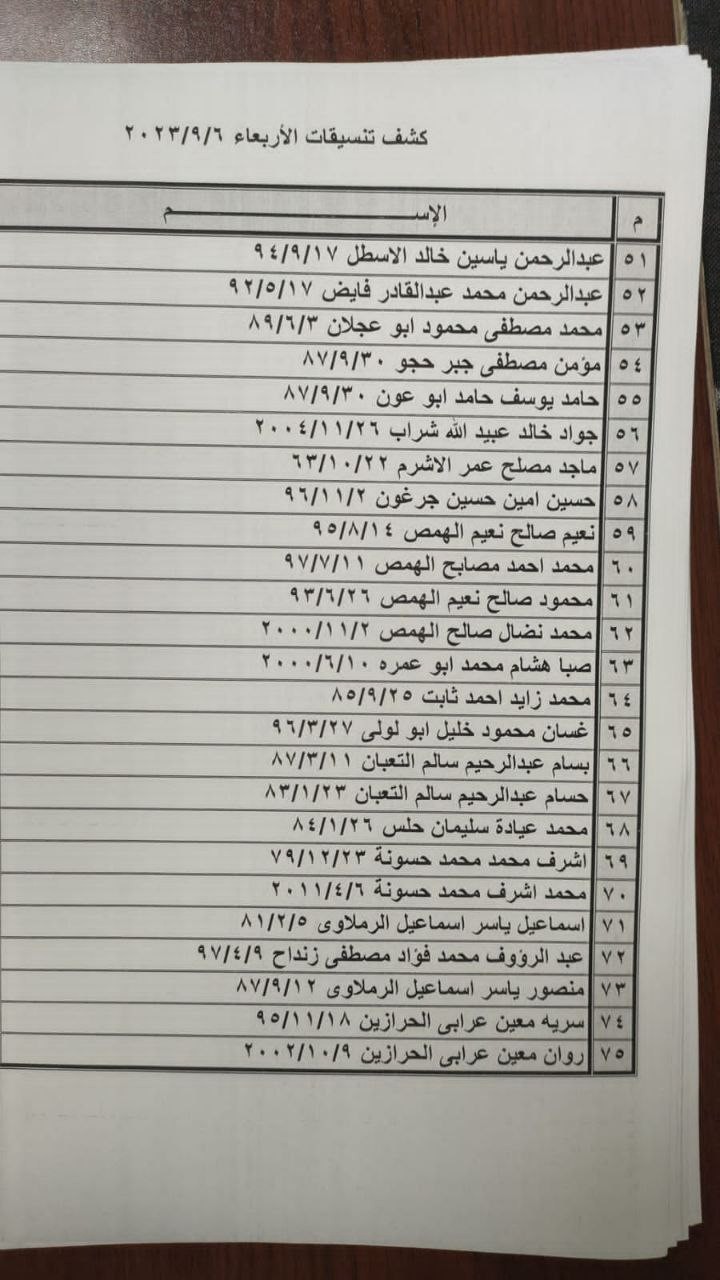 كشف تنسيقات الأربعاء ٢٠٢٣/٩/٦
م الإســـــــــــــــــــم
٥١ عبدالرحمن ياسين خالد الاسطل ٩٤/٩/١٧
٥٢ عبدالرحمن محمد عبدالقادر فايض ٩٢/٥/١٧
٥٣ محمد مصطفى محمود ابو عجلان ٨٩/٦/٣
٥٤ مؤمن مصطفى جبر حجو ٨٧/٩/٣٠
٥٥ حامد يوسف حامد ابو عون ٨٧/٩/٣٠
٥٦ جواد خالد عبيد الله شراب ٢٠٠٤/١١/٢٦
٥٧ ماجد مصلح عمر الاشرم ٦٣/١٠/٢٢
٥٨ حسين امين حسين جرغون ٩٦/١١/٢
٥٩ نعيم صالح نعيم الهمص ٩٥/٨/١٤
٦٠ محمد احمد مصابح الهمص ٩٧/٧/١١
٦١ محمود صالح نعيم الهمص ٩٣/٦/٢٦
٦٢ محمد نضال صالح الهمص ٢٠٠٠/١١/٢
٦٣ صبا هشام محمد ابو عمره ٢٠٠٠/٦/١٠
٦٤ محمد زايد احمد ثابت ٨٥/٩/٢٥
٦٥ غسان محمود خليل ابو لولى ٩٦/٣/٢٧
٦٦ بسام عبدالرحيم سالم التعبان ٨٧/٣/١١
٦٧ حسام عبدالرحيم سالم التعبان ٨٣/١/٢٣
٦٨ محمد عيادة سليمان حلس ٨٤/١/٢٦
٦٩ اشرف محمد محمد حسونة ٧٩/١٢/٢٣
٧٠ محمد اشرف محمد حسونة ٢٠١١/٤/٦
٧١ اسماعيل ياسر اسماعيل الرملاوى ٨١/٢/٥
٧٢ عبد الرؤوف محمد فؤاد مصطفى زنداح ٩٧/٤/٩
٧٣ منصور ياسر اسماعيل الرملاوى ٨٧/٩/١٢
٧٤ سريه معين عرابى الحرازين ٩٥/١١/١٨
٧٥ روان معين عرابى الحرازين ٢٠٠٢/١٠/٩